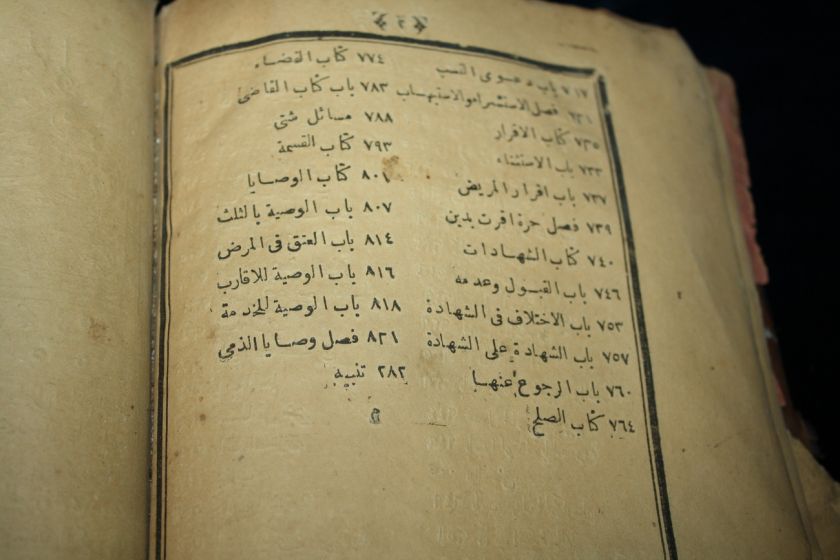 ٧١٧ باب دعوى النسب
٧٢١ فصل الاستشراء والاستيهاب
٧٢٥ كتاب الاقرار
٧٣٣ باب الاستثناء
٧٣٧ باب اقرار المريض
٧٣٩ فصل حرة اقرت بدين
٧٤٠ كتاب الشهادات
٧٤٦ باب القبول وعدمه
٧٥٣ باب الاختلاف فى الشهادة
٧٥٧ باب الشهادة على الشهادة
٧٦٠ باب الرجوع عنها
٧٦٤ كتاب الصلح
٧٧٤ كتاب القضاء
٧٨٣ باب كتاب القاضى
٧٨٨ مسائل شتى
٧٩٣ كتاب القسمة
٨٠١ كتاب الوصايا
٨٠٧ باب الوصية بالثلث
٨١٤ باب العتق فى المرض
٨١٦ باب الوصية للاقارب
٨١٨ باب الوصية للخدمة
٨٢١ فصل وصايا الذمى
٢٨٢ تنبيه